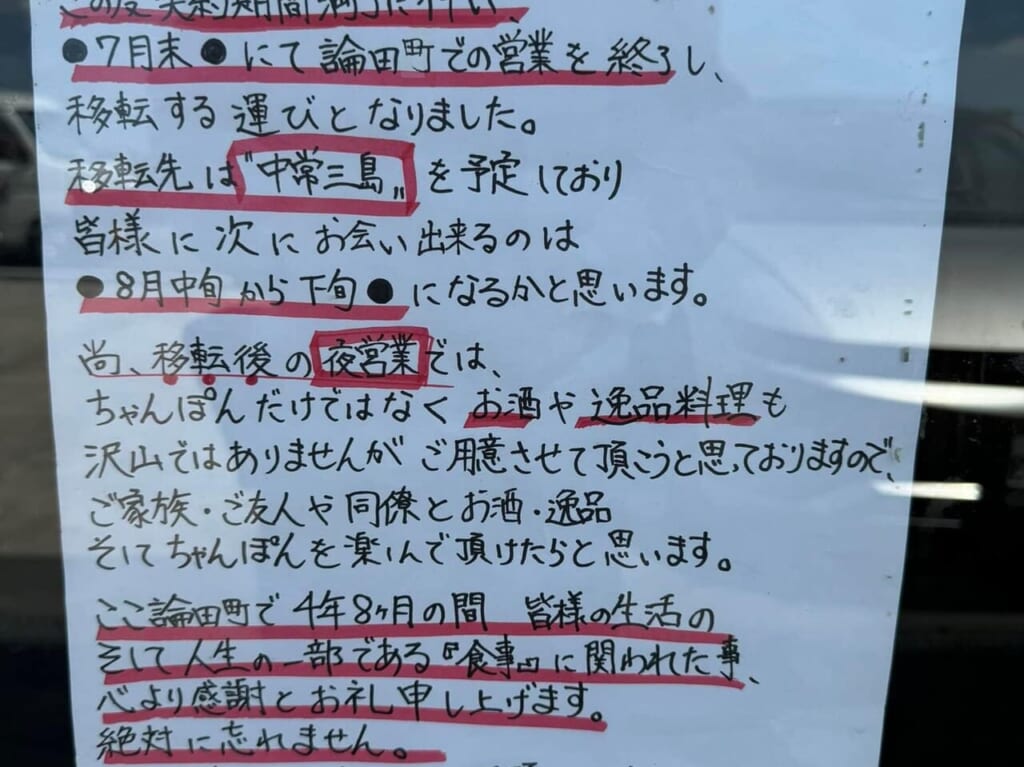 この度契約期間満了に伴い、
●7月末●にて論田町での営業を終了し、
移転する運びとなりました。
移転先は〝中常三島〟を予定しており
皆様に次にお会い出来るのは
●8月中旬から下旬●になるかと思います。
尚、移転後の夜営業では、
ちゃんぽんだけではなくお酒や逸品料理も
沢山ではありませんがご用意させて頂こうと思っておりますので、
ご家族・ご友人や同僚とお酒・逸品
そしてちゃんぽんを楽しんで頂けたらと思います。
ここ論田町で4年8ヶ月の間 皆様の生活の
そして人生の一部である『食事』に関われた事、
心より感謝とお礼申し上げます。
絶対に忘れません。